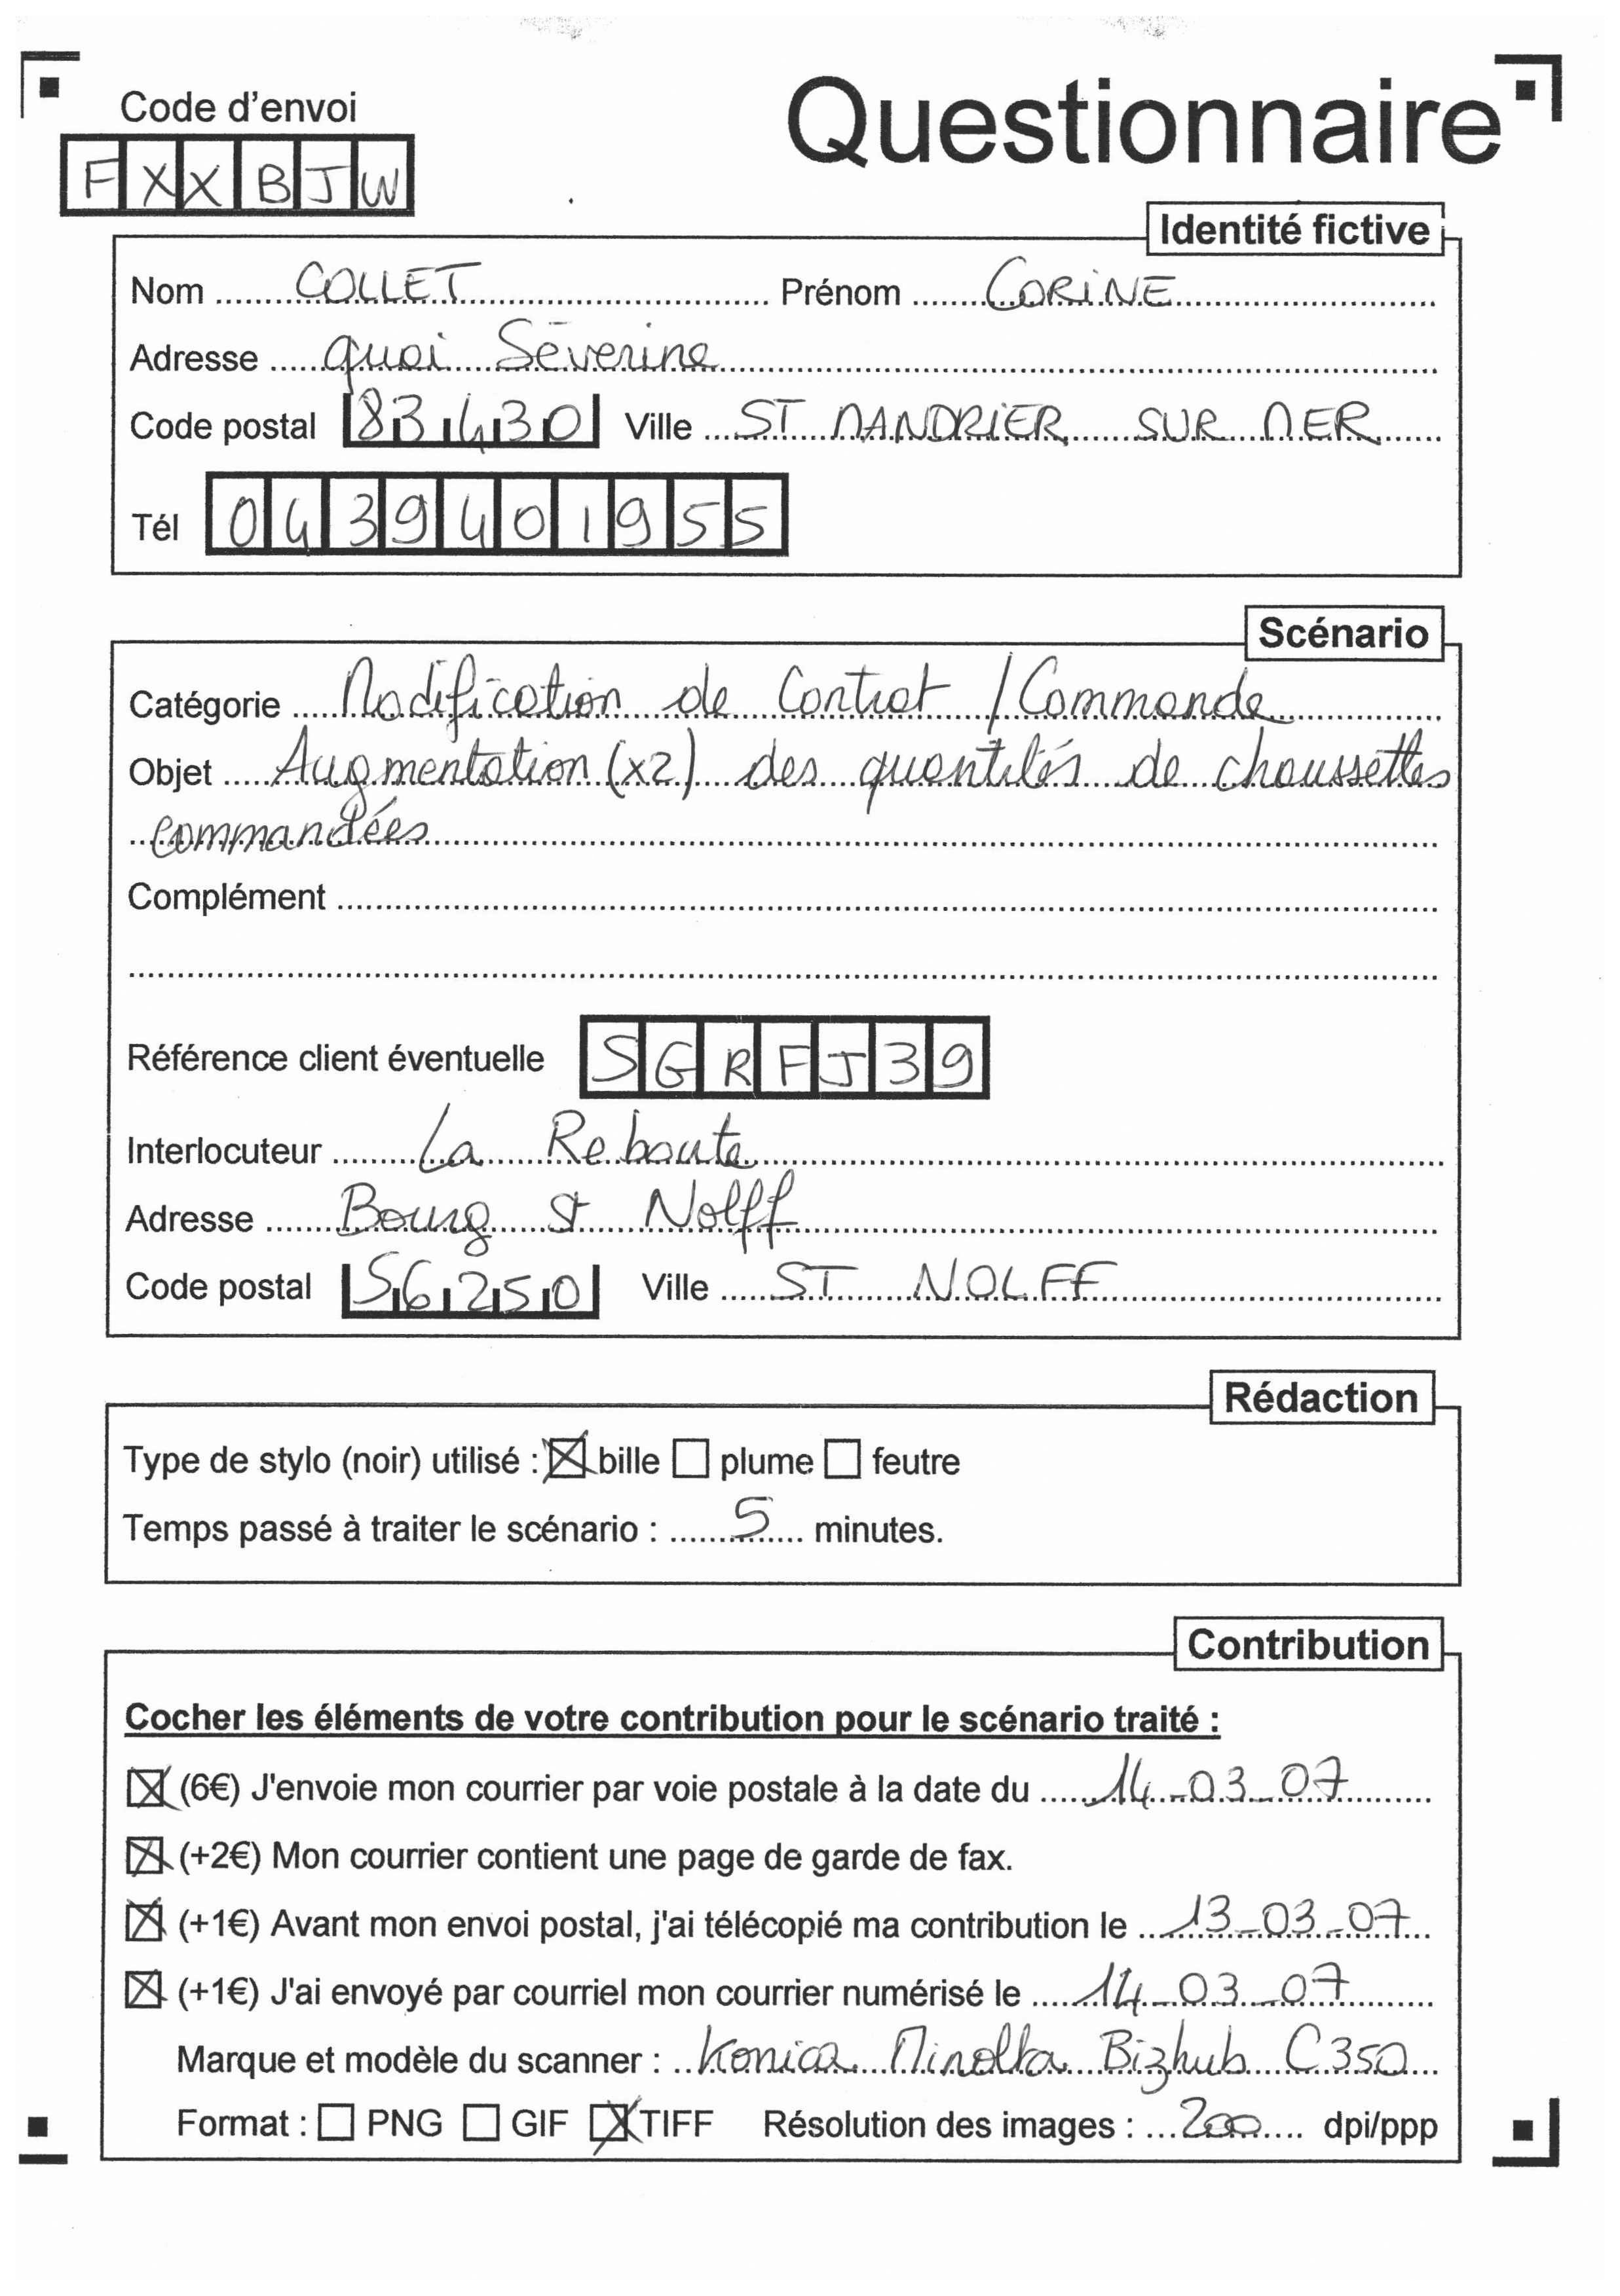 Questionnaire
Code d'envoi
FXXBJW
Identité fictive
Nom COLLET Prénom CORINE
Adresse quai Séverine
Code postal 83430 Ville ST MANDRIER SUR MER
Tél 0439401955
Scénario
Catégorie Modification de Contrat / Commande
Objet Augmentation (x2) des quantités de choussettes
commandées
Complément
Référence client éventuelle SGRFJ39
Interlocuteur La Reboute
Adresse Bourg St Nolff
Code postal 56250 Ville ST NOLFF
Rédaction
Type de stylo (noir) utilisé : ☒ bille ☐ plume ☐ feutre
Temps passé à traiter le scénario : 5 minutes.
Contribution
Cocher les éléments de votre contribution pour le scénario traité :
☒ (6€) J'envoie mon courrier par voie postale à la date du 14-03-07
☒ (+2€) Mon courrier contient une page de garde de fax.
☒ (+1€) Avant mon envoi postal, j'ai télécopié ma contribution le 13-03-07
☒ (+1€) J'ai envoyé par courriel mon courrier numérisé le 14-03-07
Marque et modèle du scanner : Konica Minolta Bizhub C350
Format : ☐ PNG ☐ GIF ☒ TIFF Résolution des images : 200 dpi/ppp